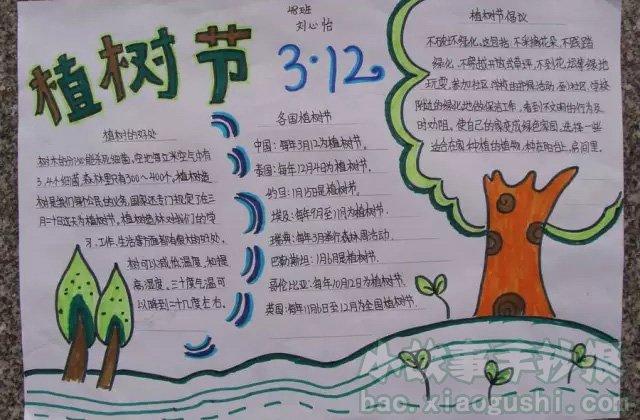 植树节
48班
刘心怡
3·12
植树的好处
树木的分泌能杀死细菌,空地每立米空气中有
3、4万细菌,森林里只有300~400个。植树造
树是我们每个公民的义务,国家还专门规定了在三
月十二日这天为植树节。植树造林对我们的学
习、工作、生活等方面都有很大的好处。
树可以减低温度,和提
高湿度。三十度气温可
以降到二十几度左右。
各国植树节
中国:每年3月12为植树节。
泰国:每年12月4日为植树节。
约旦:1月15日是植树节。
埃及:每年9月至1月为植树节。
瑞典:每年3月举行森林周活动。
巴勒斯坦:1月6是植树节。
哥伦比亚:每年10月2日为植树节。
英国:每年11月6日至12月为全国植树节。
植树节倡议
不破坏绿化,这包括:不采摘花朵、不践踏
绿化、不跨越开放草坪、不到花坛等绿地
玩耍。参加社区、学校的护绿活动。到社区、学校
附近的绿化地的保洁工作,看到不文明的行为及
时劝阻。使自己的家变成绿色家园。选择一些
适合在家种植的植物,种在阳台、房间里。
小故事手抄报
bao.xiaogushi.com